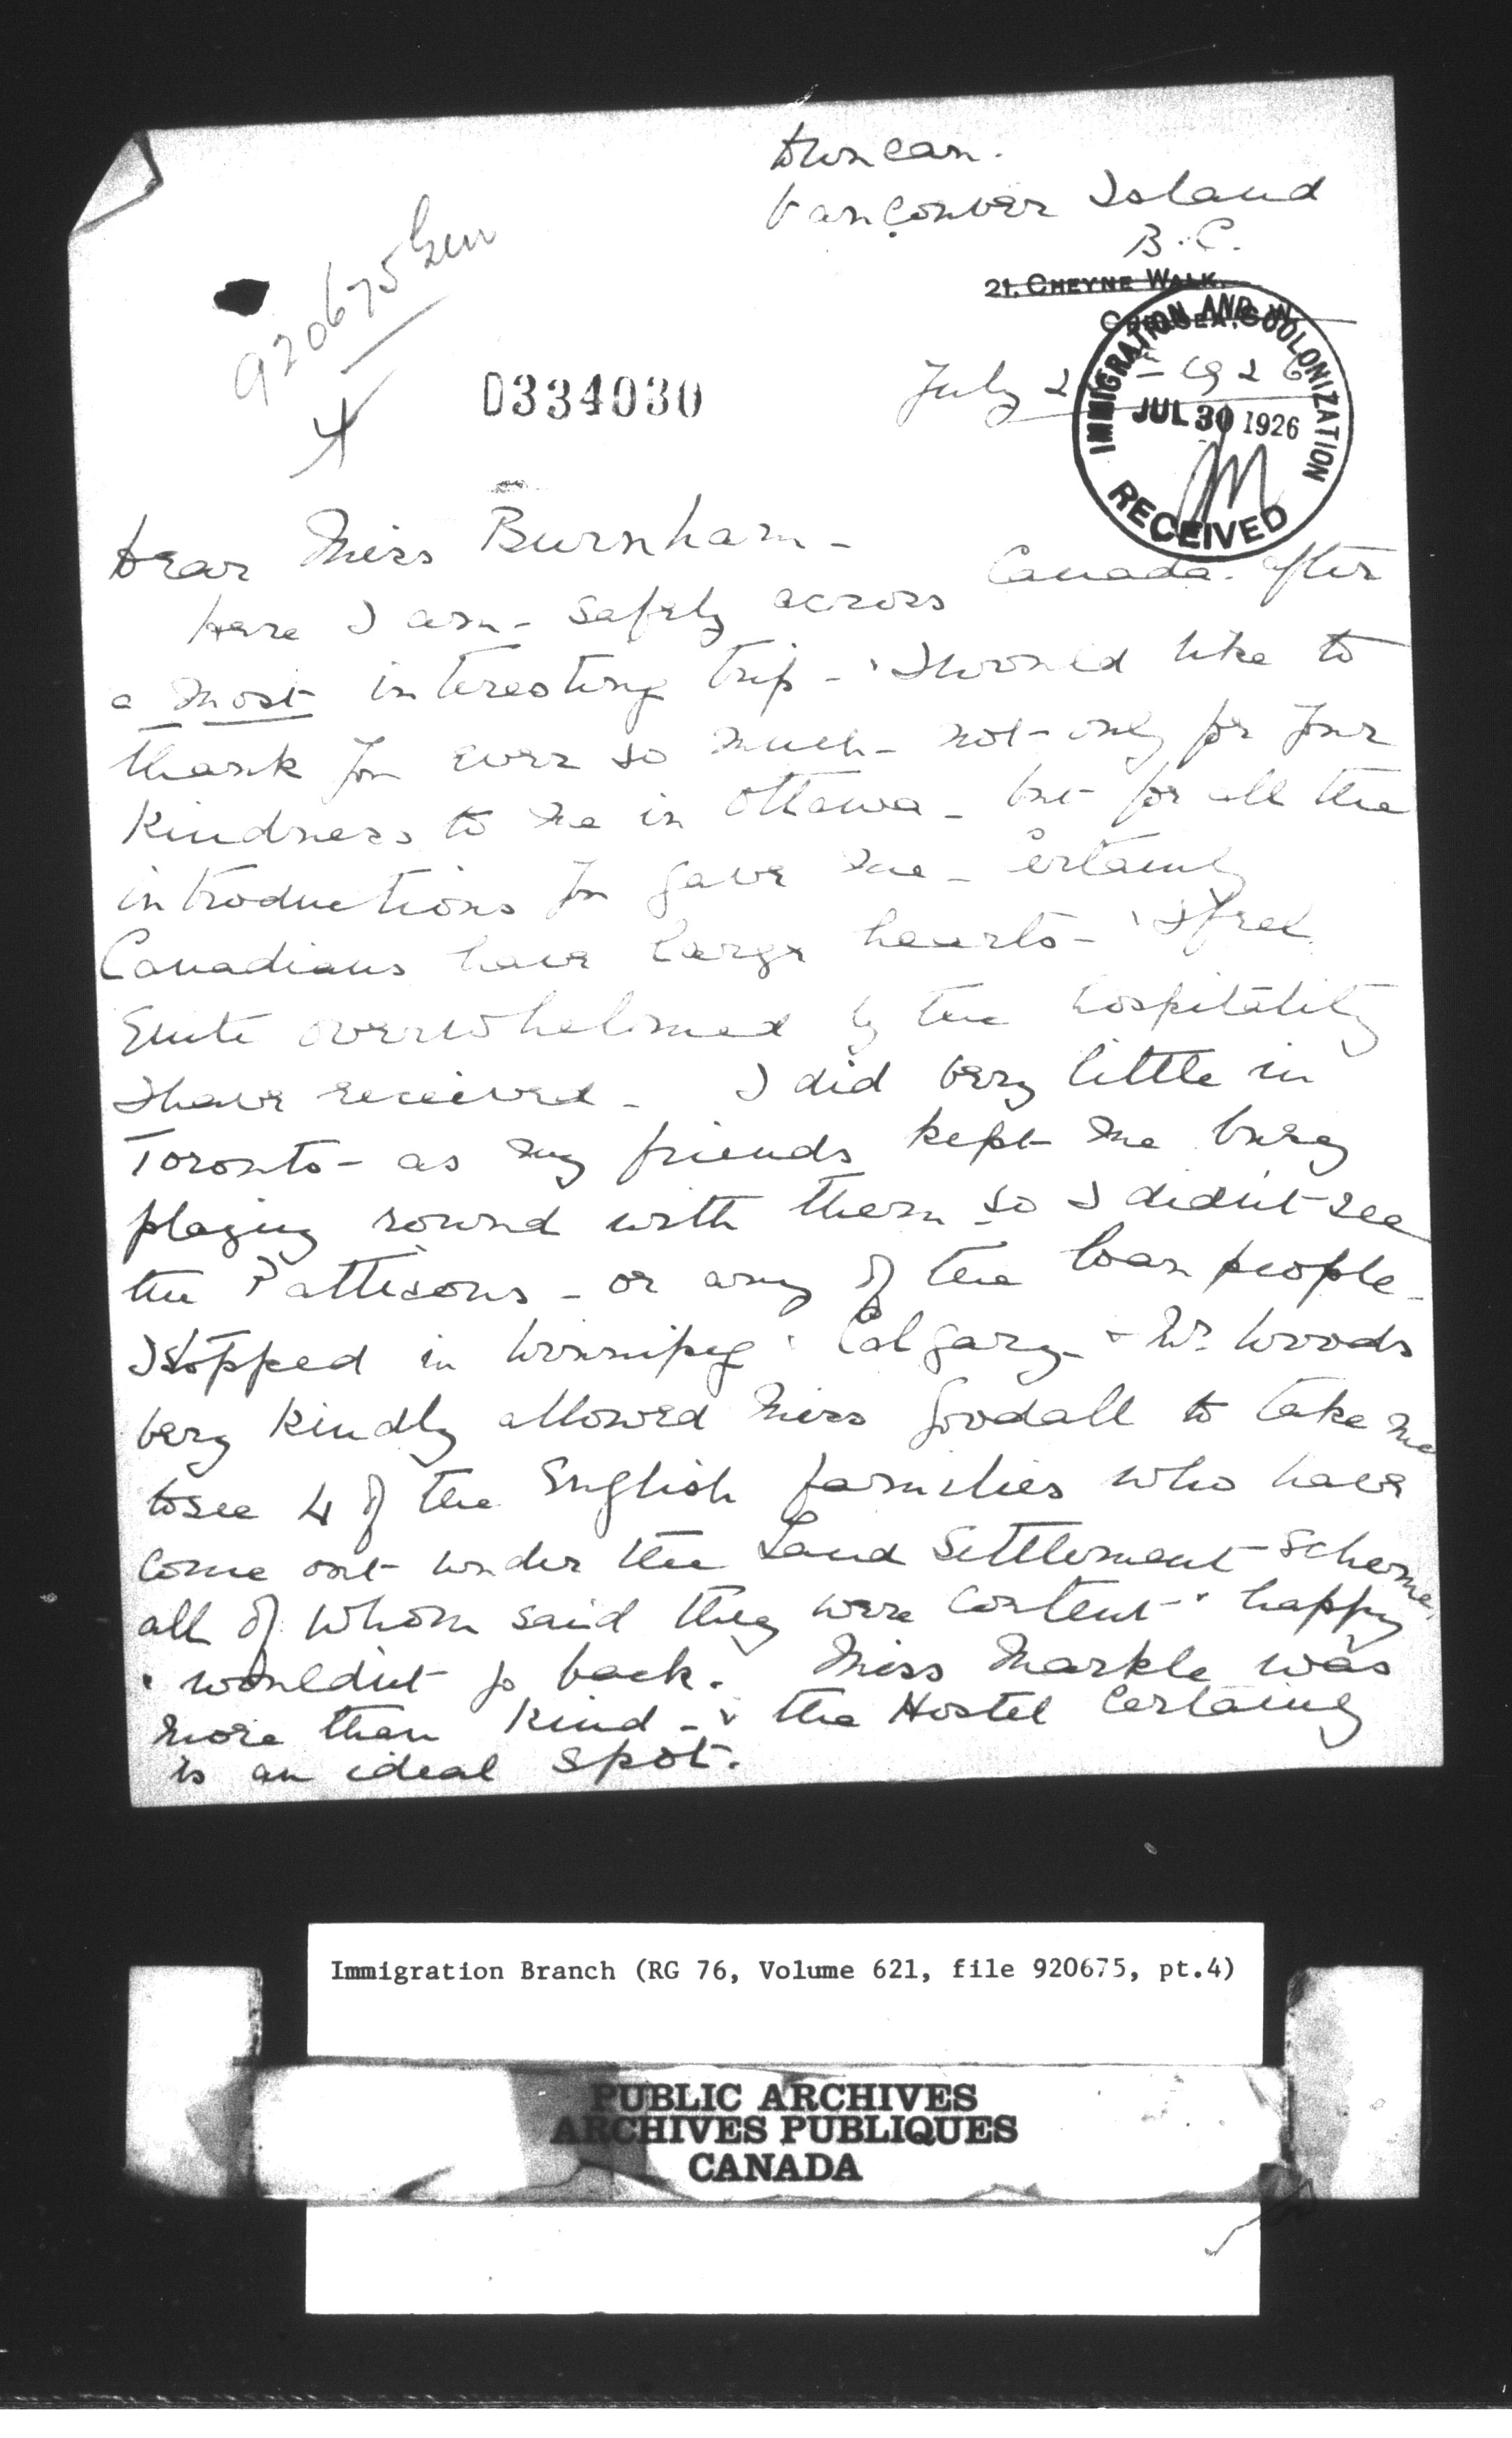 Duncan.
Vancouver Island
B.C.
21, CHEYNE WALK,
CHELSEA, S.W.
920675 Gen
D334030
July 2 1926
IMMIGRATION AND COLONIZATION
JUL 30 1926
RECEIVED
Dear Miss Burnham -
Here I am - safely across Canada. after
a most interesting trip - I would like to
thank you ever so much - not only for your
kindness to me in Ottawa - but for all the
introductions you gave me - Certainly
Canadians have large hearts - & I feel
quite overwhelmed by the hospitality
I have received - I did very little in
Toronto - as my friends kept me busy
playing round with them so I didn't see
the Pattisons - or any of the Loan people -
I stopped in Winnipeg & Calgary - & Mr. Woods
very kindly allowed Miss Goodall to take me
to see 4 of the English families who have
come out under the Land Settlement Scheme,
all of whom said they were content & happy
& wouldn't go back. Miss Markle was
more than kind - & the Hostel certainly
is an ideal spot.
Immigration Branch (RG 76, Volume 621, file 920675, pt.4)
PUBLIC ARCHIVES
ARCHIVES PUBLIQUES
CANADA